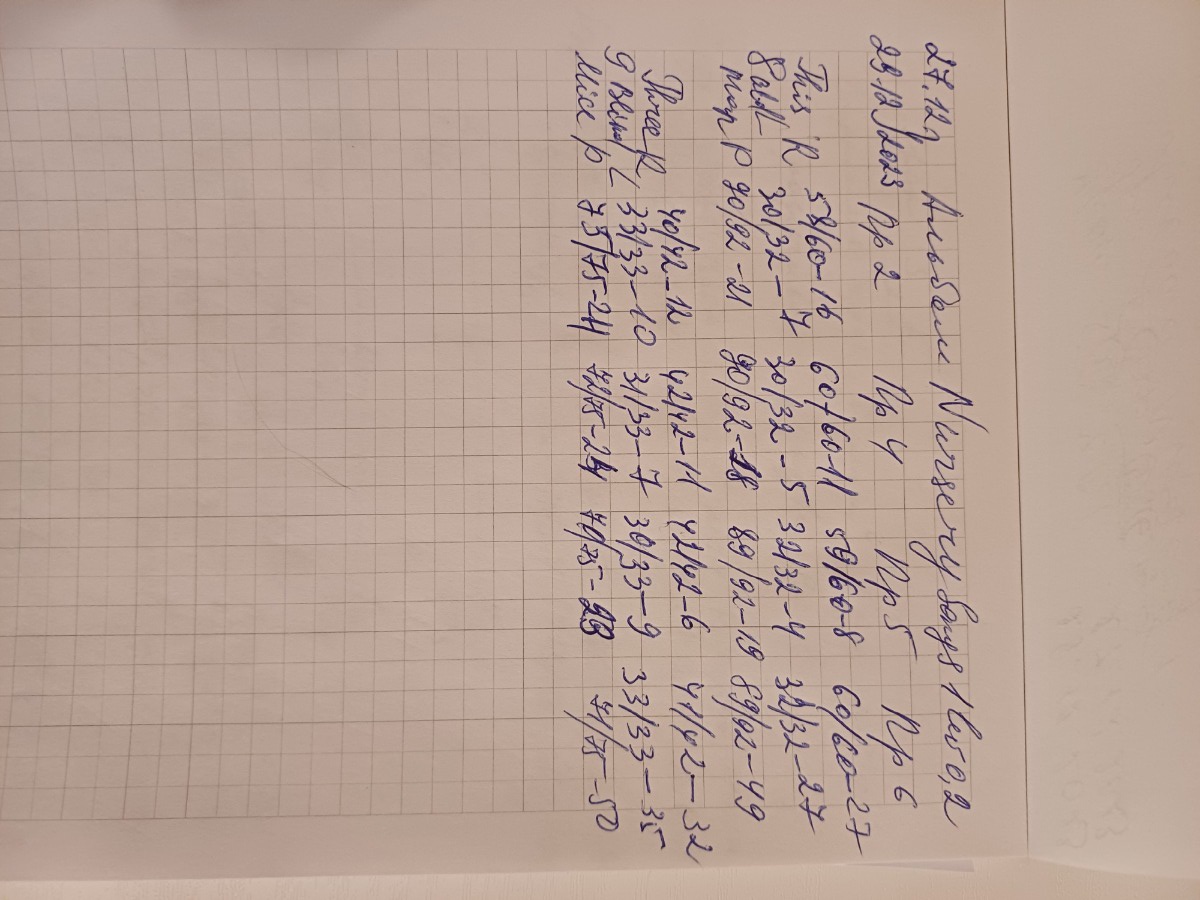 27.12г Альбом Nursery Songs 1 lev 0,2
29.12.2023 Пр 2 Пр 4 Пр 5 Пр 6
This R 58/60-16 60/60-11 59/60-8 60/60-27
L 30/32-7 30/32-5 32/32-4 32/32-27
man P 90/92-21 90/92-18 89/92-19 89/92-49
Three R 40/42-12 42/42-11 42/42-6 41/42-32
L 33/33-10 31/33-7 30/33-9 33/33-35
Mice P 73/75-24 72/75-24 70/75-23 71/75-50